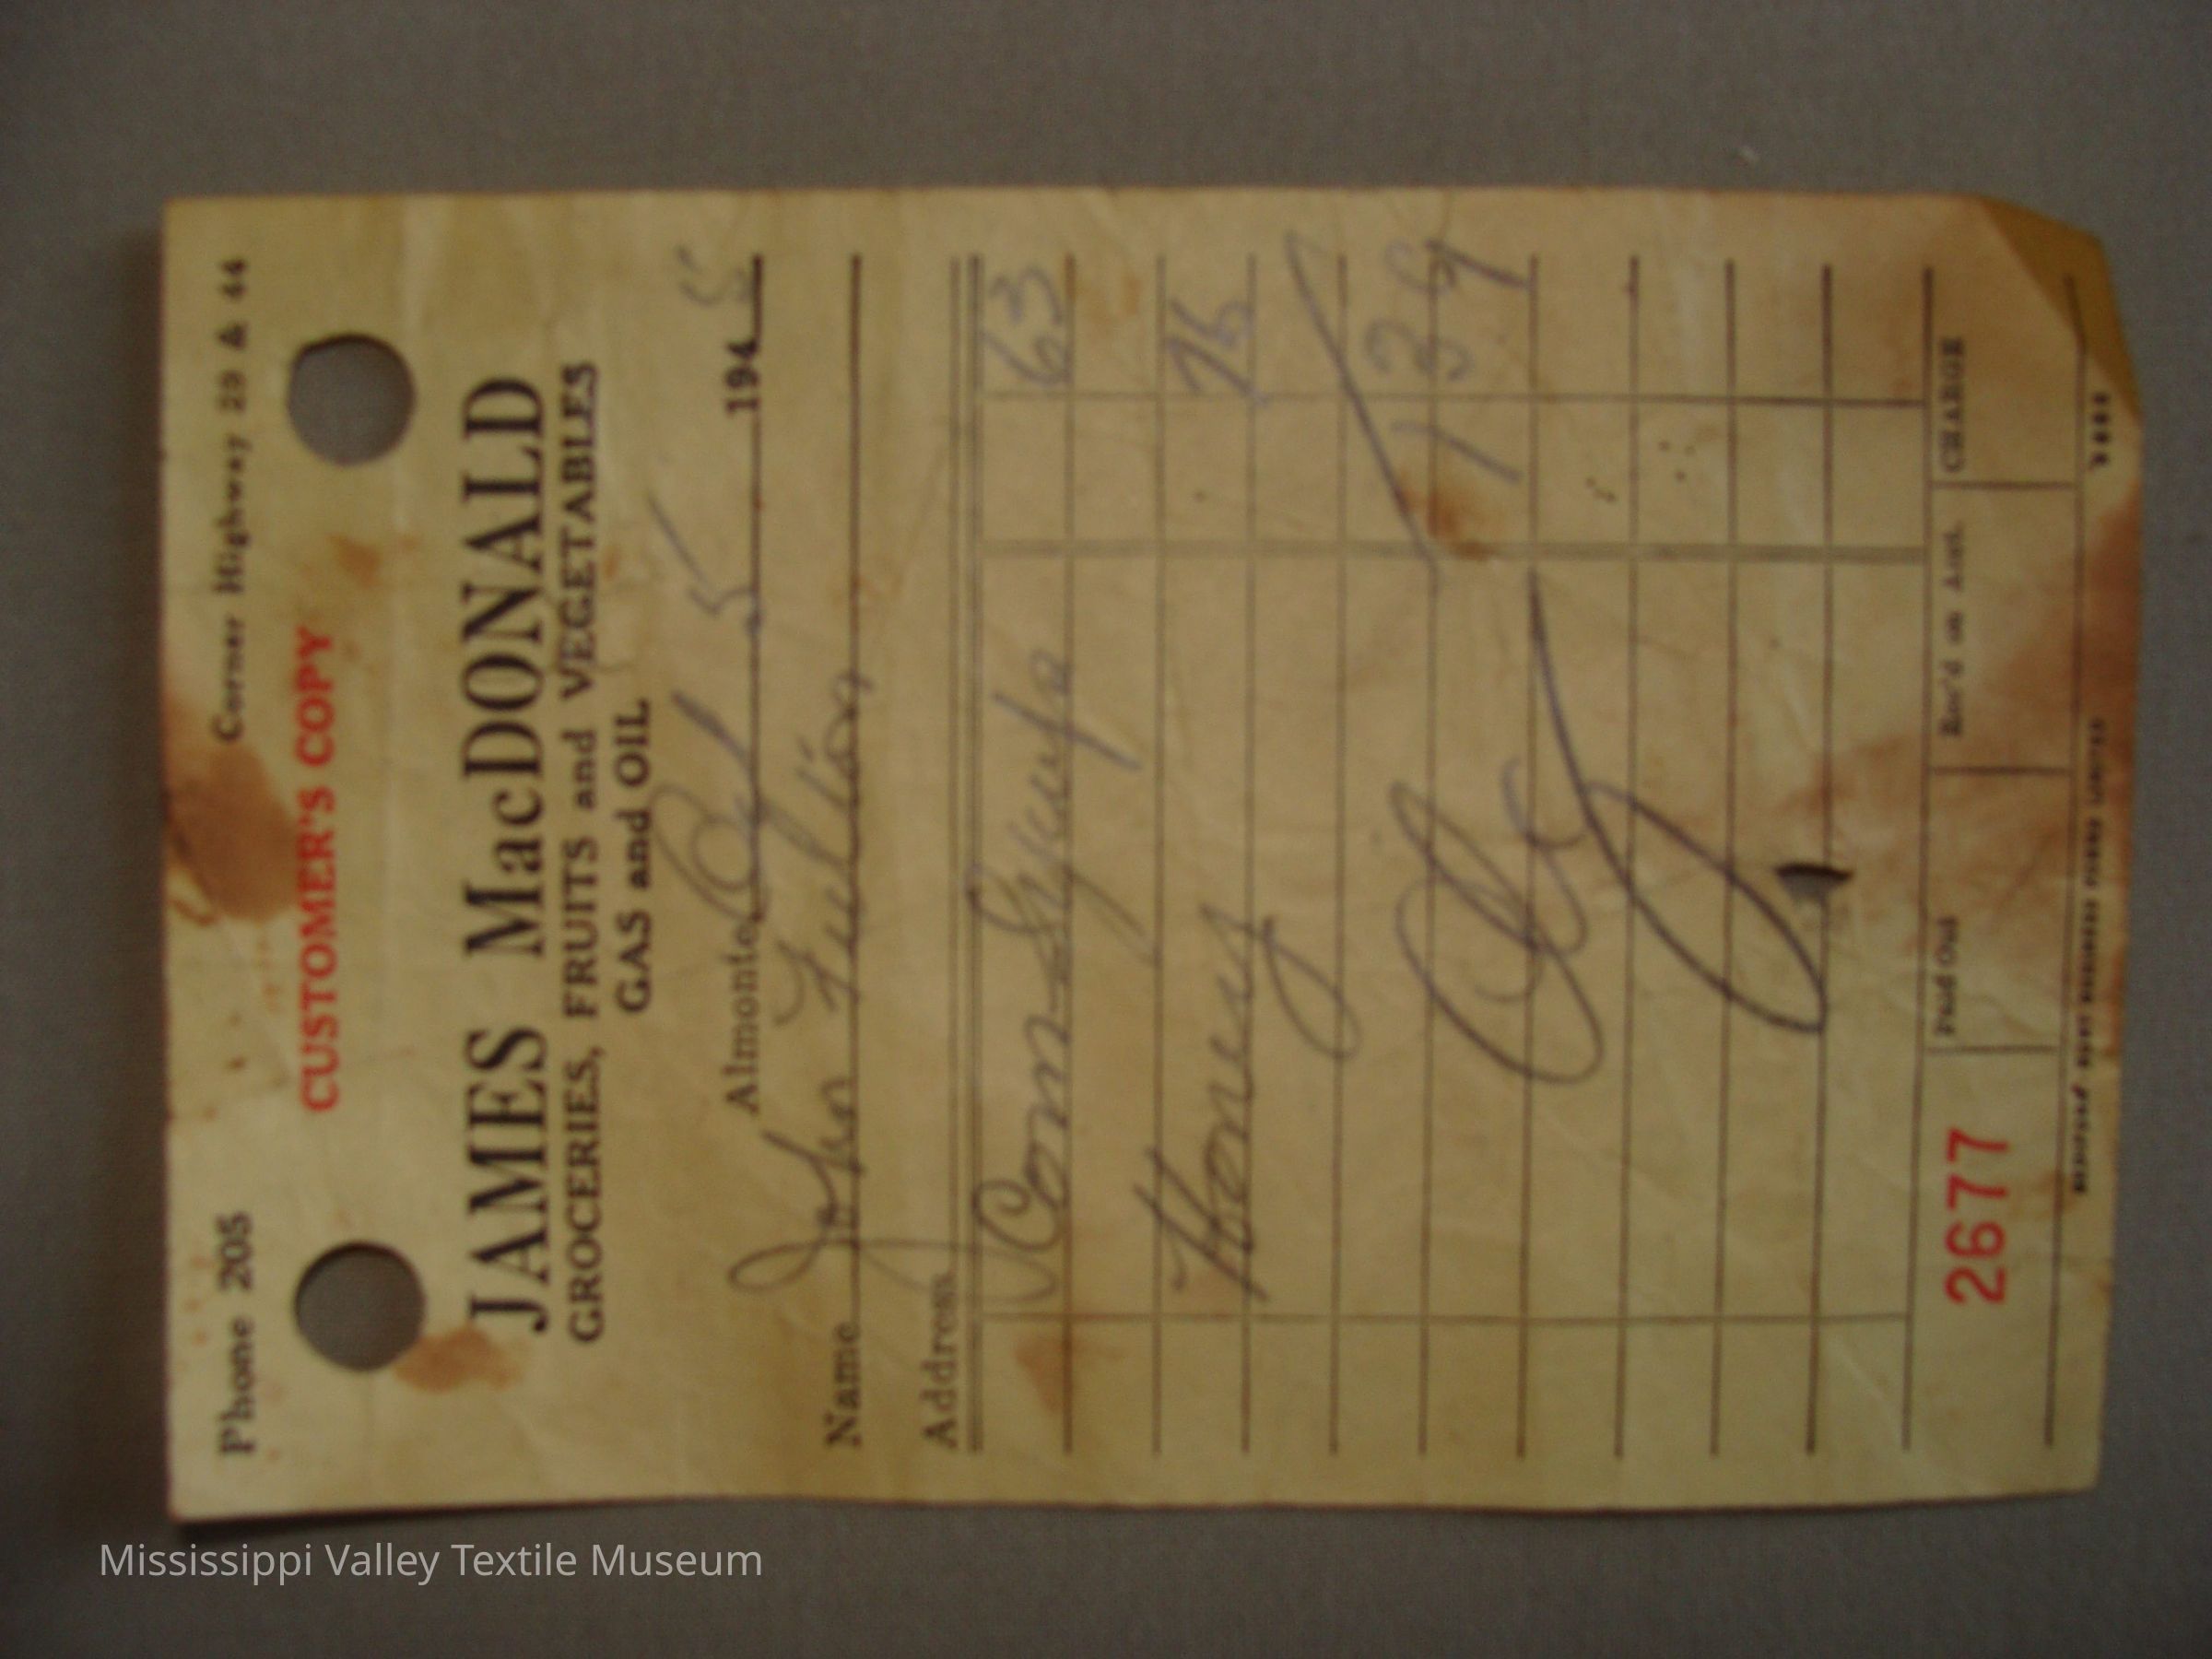 Phone 205 Corner Highway 29 & 44
CUSTOMER'S COPY
JAMES MacDONALD
GROCERIES, FRUITS and VEGETABLES
GAS and OIL
Almonte 5 1945
Name John Fulton
Address
Corn Syrup 63
Honey 76
1 39
2677 Paid Out Rec'd on Acct. CHARGE
Mississippi Valley Textile Museum